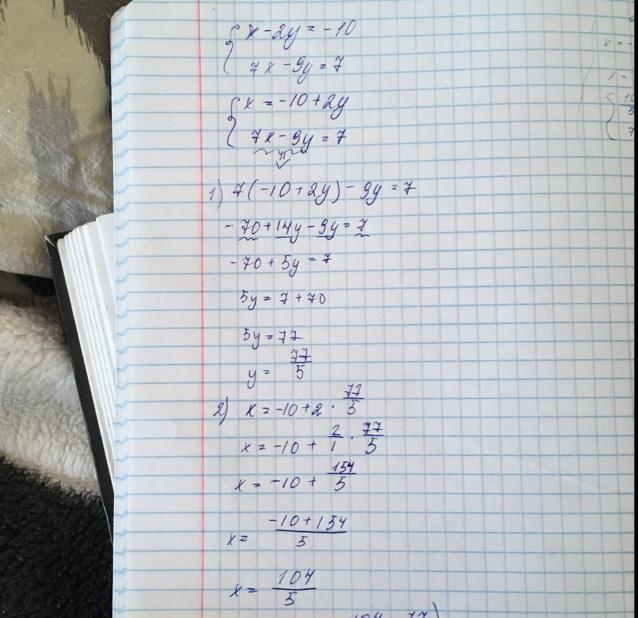 { x - 2y = -10
7x - 9y = 7
{ x = -10 + 2y
7x - 9y = 7
1) 7(-10 + 2y) - 9y = 7
-70 + 14y - 9y = 7
-70 + 5y = 7
5y = 7 + 70
5y = 77
y = 77/5
2) x = -10 + 2 · 77/5
x = -10 + 2/1 · 77/5
x = -10 + 154/5
x = -10 + 154/5
x = 104/5